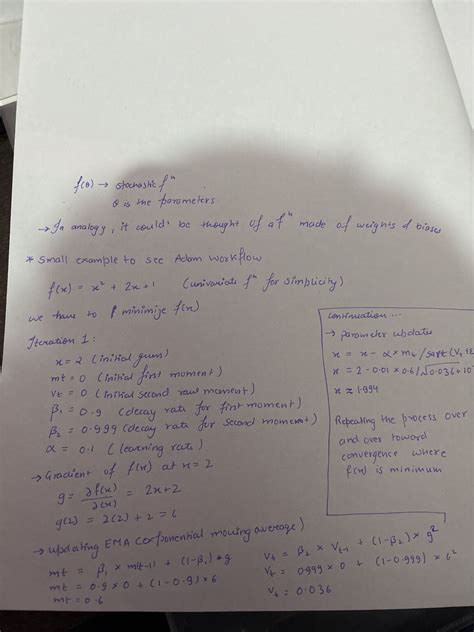 f(θ) → stochastic fⁿ
θ is the parameters
→ In analogy, it could be thought of a fⁿ made of weights & biases
* Small example to see Adam workflow
f(x) = x² + 2x + 1 (univariate fⁿ for simplicity)
we have to minimize f(x)
Iteration 1:
x = 2 (initial guess)
mt = 0 (initial first moment)
vt = 0 (initial second raw moment)
β₁ = 0.9 (decay rate for first moment)
β₂ = 0.999 (decay rate for second moment)
α = 0.1 (learning rate)
→ Gradient of f(x) at x = 2
g = ∂f(x)/∂(x) = 2x + 2
g(2) = 2(2) + 2 = 6
→ updating EMA (exponential moving average)
mt = β₁ × m(t-1) + (1-β₁) * g
mt = 0.9 × 0 + (1-0.9) × 6
mt = 0.6
Vₜ = β₂ × Vₜ₋₁ + (1-β₂) × g²
Vₜ = 0.999 × 0 + (1-0.999) × 6²
Vₜ = 0.036
Continuation...
→ parameter updates
x = x - α × mₜ / sqrt(Vₜ +
x = 2 - 0.01 × 0.6 / √0.036 + 10
x ≈ 1.994
Repeating the process over
and over toward
convergence where
f(x) is minimum